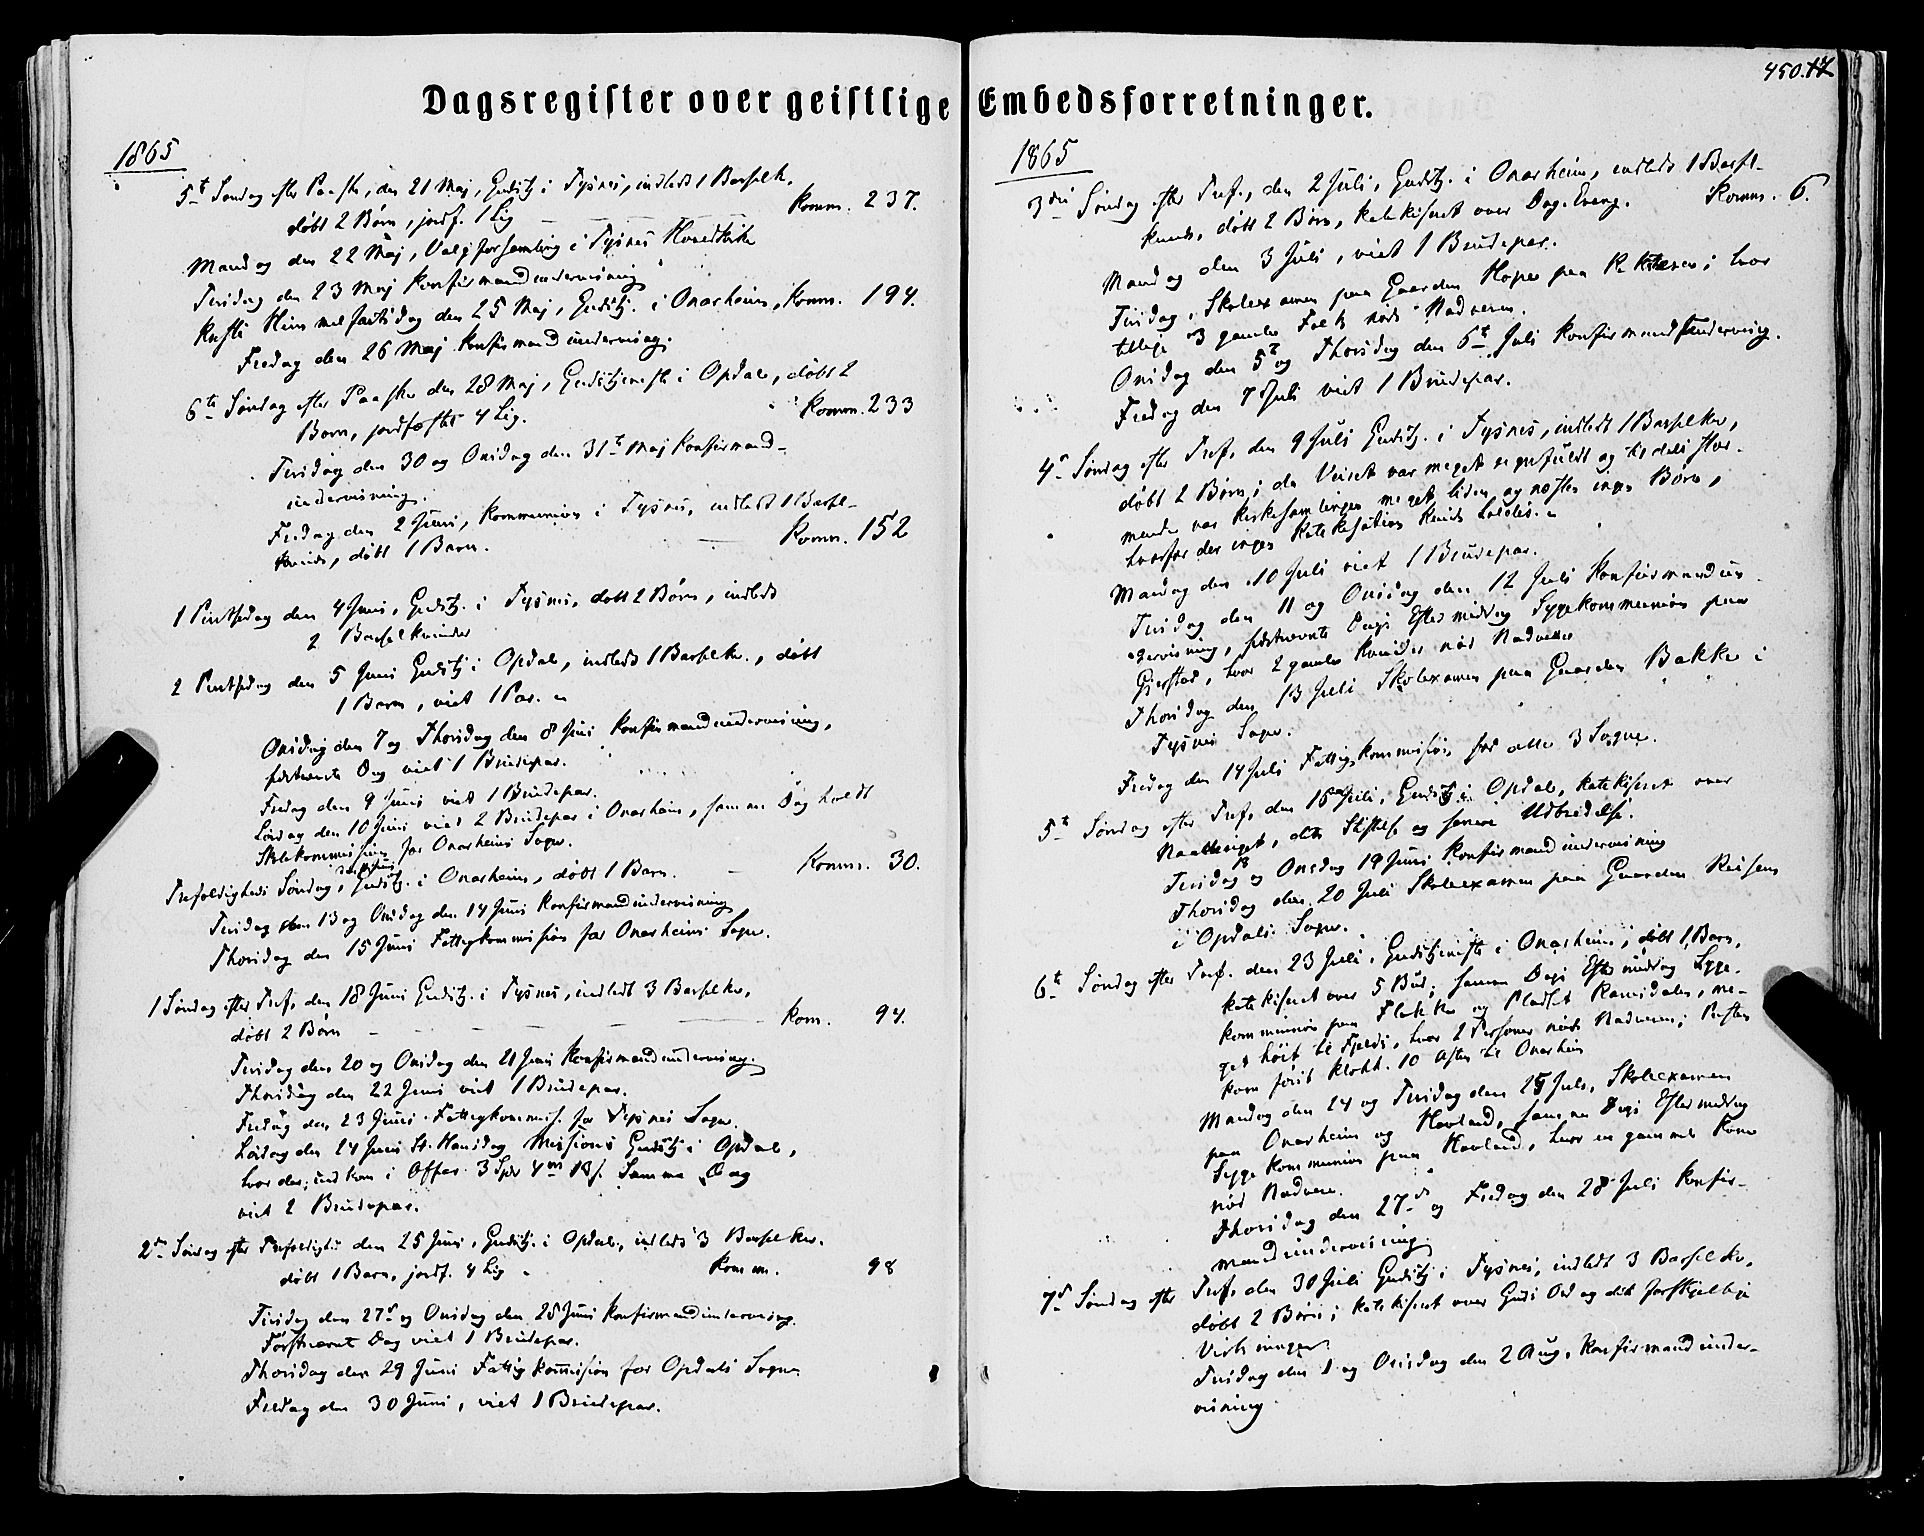 Dagsregister over geistlige Embedsforretninger.
450.17
1865
5t Søndag efter Paaske, den 21 Maj, Gudstj. i Tysnes, indledt 1 Barselk.
døbt 2 Børn, jordf. 1 Lig Komm. 237.
Mandag den 22 Maj, Valgforsamling i Tysnes Hovedkirke
Tirsdag den 23 Maj Konfirmandundervisning
Kristi Himmelfartsdag den 25 Maj, Gudstj. i Onarheim, Komm. 194.
Fredag den 26 Maj Konfirmandundervisng.
6te Søndag efter Paaske den 28 Maj, Gudstjeneste i Opdal, døbt 2
Børn, jordfæstet 4 Lig. Komm. 233
Tirsdag den 30 og Onsdag den 31t Maj Konfirmand-
undervisning.
Fredag den 2 Juni, Kommunion i Tysnes, indledt 1 Barsel-
kvinde, døbt 1 Barn. Komm. 152
1 Pintsedag den 4 Juni, Gudstj. i Tysnes, døbt 2 Børn, indledt
2 Barselkvinder
2 Pintsedag den 5 Juni Gudstj. i Opdal, indledt 1 Barselkv., døbt
1 Barn, viet 1 Par.
Onsdag den 7 og Thorsdag den 8 Juni Konfirmandundervisning,
førstnævnte Dag viet 1 Brudepar.
Fredag den 9 Juni viet 1 Brudepar.
Lørdag den 10 Juni viet 2 Brudepar i Onarheim, samme Dag holdt
Skolekommission for Onarheims Sogn.
Trefoldigheds Søndag, Gudstj. i Onarheim, døbt 1 Barn. Komm. 30.
Tirsdag den 13 og Onsdag den 14 Juni Konfirmandundervisning
Thorsdag den 15 Juni Fattigkommission for Onarheims Sogn.
1 Søndag efter Tref. den 18 Juni Gudstj. i Tysnes, indledt 3 Barselkv.,
døbt 2 Børn Kom. 94.
Tirsdag den 20 og Onsdag den 21 Juni Konfirmandundervisning.
Thorsdag den 22 Juni viet 1 Brudepar.
Fredag den 23 Juni Fattigkommis. for Tysnes Sogn.
Lørdag den 24 Juni St. Hansdag Missions Gudstj. i Opdal,
hvor der indkom i Offer 3 Spd 4 m 18 s. Samme Dag
viet 2 Brudepar.
2den Søndag efter Trefoldighed den 25 Juni, Gudstj. i Opdal, indledt 3 Barselkv.
døbt 1 Barn, jordf. 4 Lig Komm. 98
Tirsdag den 27de og Onsdag den 28 Juni Konfirmandundervisng.
Førstnævnt Dag viet 1 Brudepar.
Thorsdag den 29 Juni Fattigkommission for Opdals Sogn
Fredag den 30 Juni, viet 1 Brudepar.
1865
3die Søndag efter Tref., den 2 Juli, Gudstj. i Onarheim, indledt 1 Barsel-
kvinde, døbt 2 Børn, katekiseret over Dag. Evang. Komm. 6.
Mandag den 3 Juli, viet 1 Brudepar.
Tirsdag, Skoleexamen paa Gaarden Hope paa; hvor
tillige 3 gamle Folk nød Nadveren.
Onsdag den 5t og Thorsdag den 6t Juli Konfirmandundervisng.
Fredag den 7 Juli viet 1 Brudepar.
4de Søndag efter Tref. den 9 Juli Gudstj. i Tysnes, indledt 1 Barselkv,
døbt 2 Børn; da Veiret var meget regnfuldt og tildels stor-
mende var Kirkesamlingen meget liden og næsten ingen Børn,
hvorfor der ingen Katekisation kunde holdes.
Mandag den 10 Juli viet 1 Brudepar.
Tirsdag den 11 og Onsdag den 12 Juli Konfirmandun-
dervisning, førstnævnte Dags Eftermiddag Sygekommunion paa
Gjerstad, hvor 2 gamle Kvinder nød Nadveren
Thorsdag den 13 Juli Skoleexamen paa Gaarden Bakke i
Tysnes Sogn.
Fredag den 14 Juli Fattigkommission for alle 3 Sogne.
5t Søndag efter Tref. den 16 Juli, Gudstj. i Opdal, katekiseret over
Naaderiget, dets Stiftelse og senere Udbredelse.
Tirsdag 18 og Onsdag 19 Juni Konfirmandundervisning
Thorsdag den 20 Juli Skoleexamen paa Gaarden Reisen
i Opdals Sogn.
6t Søndag efter Tref. den 23 Juli, Gudstjeneste i Onarheim, døbt 1 Barn,
katekiseret over 5 Bud; samme Dags Eftermiddag Syge-
kommunion paa Flakke og Pladset Ramsdalen, me-
get høit til Fjelds, hvor 2 Personer nød Nadveren; Præsten
kom først Klokk. 10 Aften til Onarheim
Mandag den 24 og Tirsdag den 25 Juli, Skoleexamen
paa Onarheim og Hovland, samme Dags Eftermiddag
Sygekommunion paa Hovland, hvor en gammel Kone
nød Nadvere.
Thorsdag den 27de og Fredag den 28 Juli Konfir-
mandundervisning.
7de Søndag efter Tref. den 30 Juli Gudstj. i Tysnes, indledt 3 Barselkv.
døbt 2 Børn; katekiseret over Guds Ord og dets forskjellige
Virkninger.
Tirsdag den 1 og Onsdag den 2 Aug. Konfirmandunder-
visning